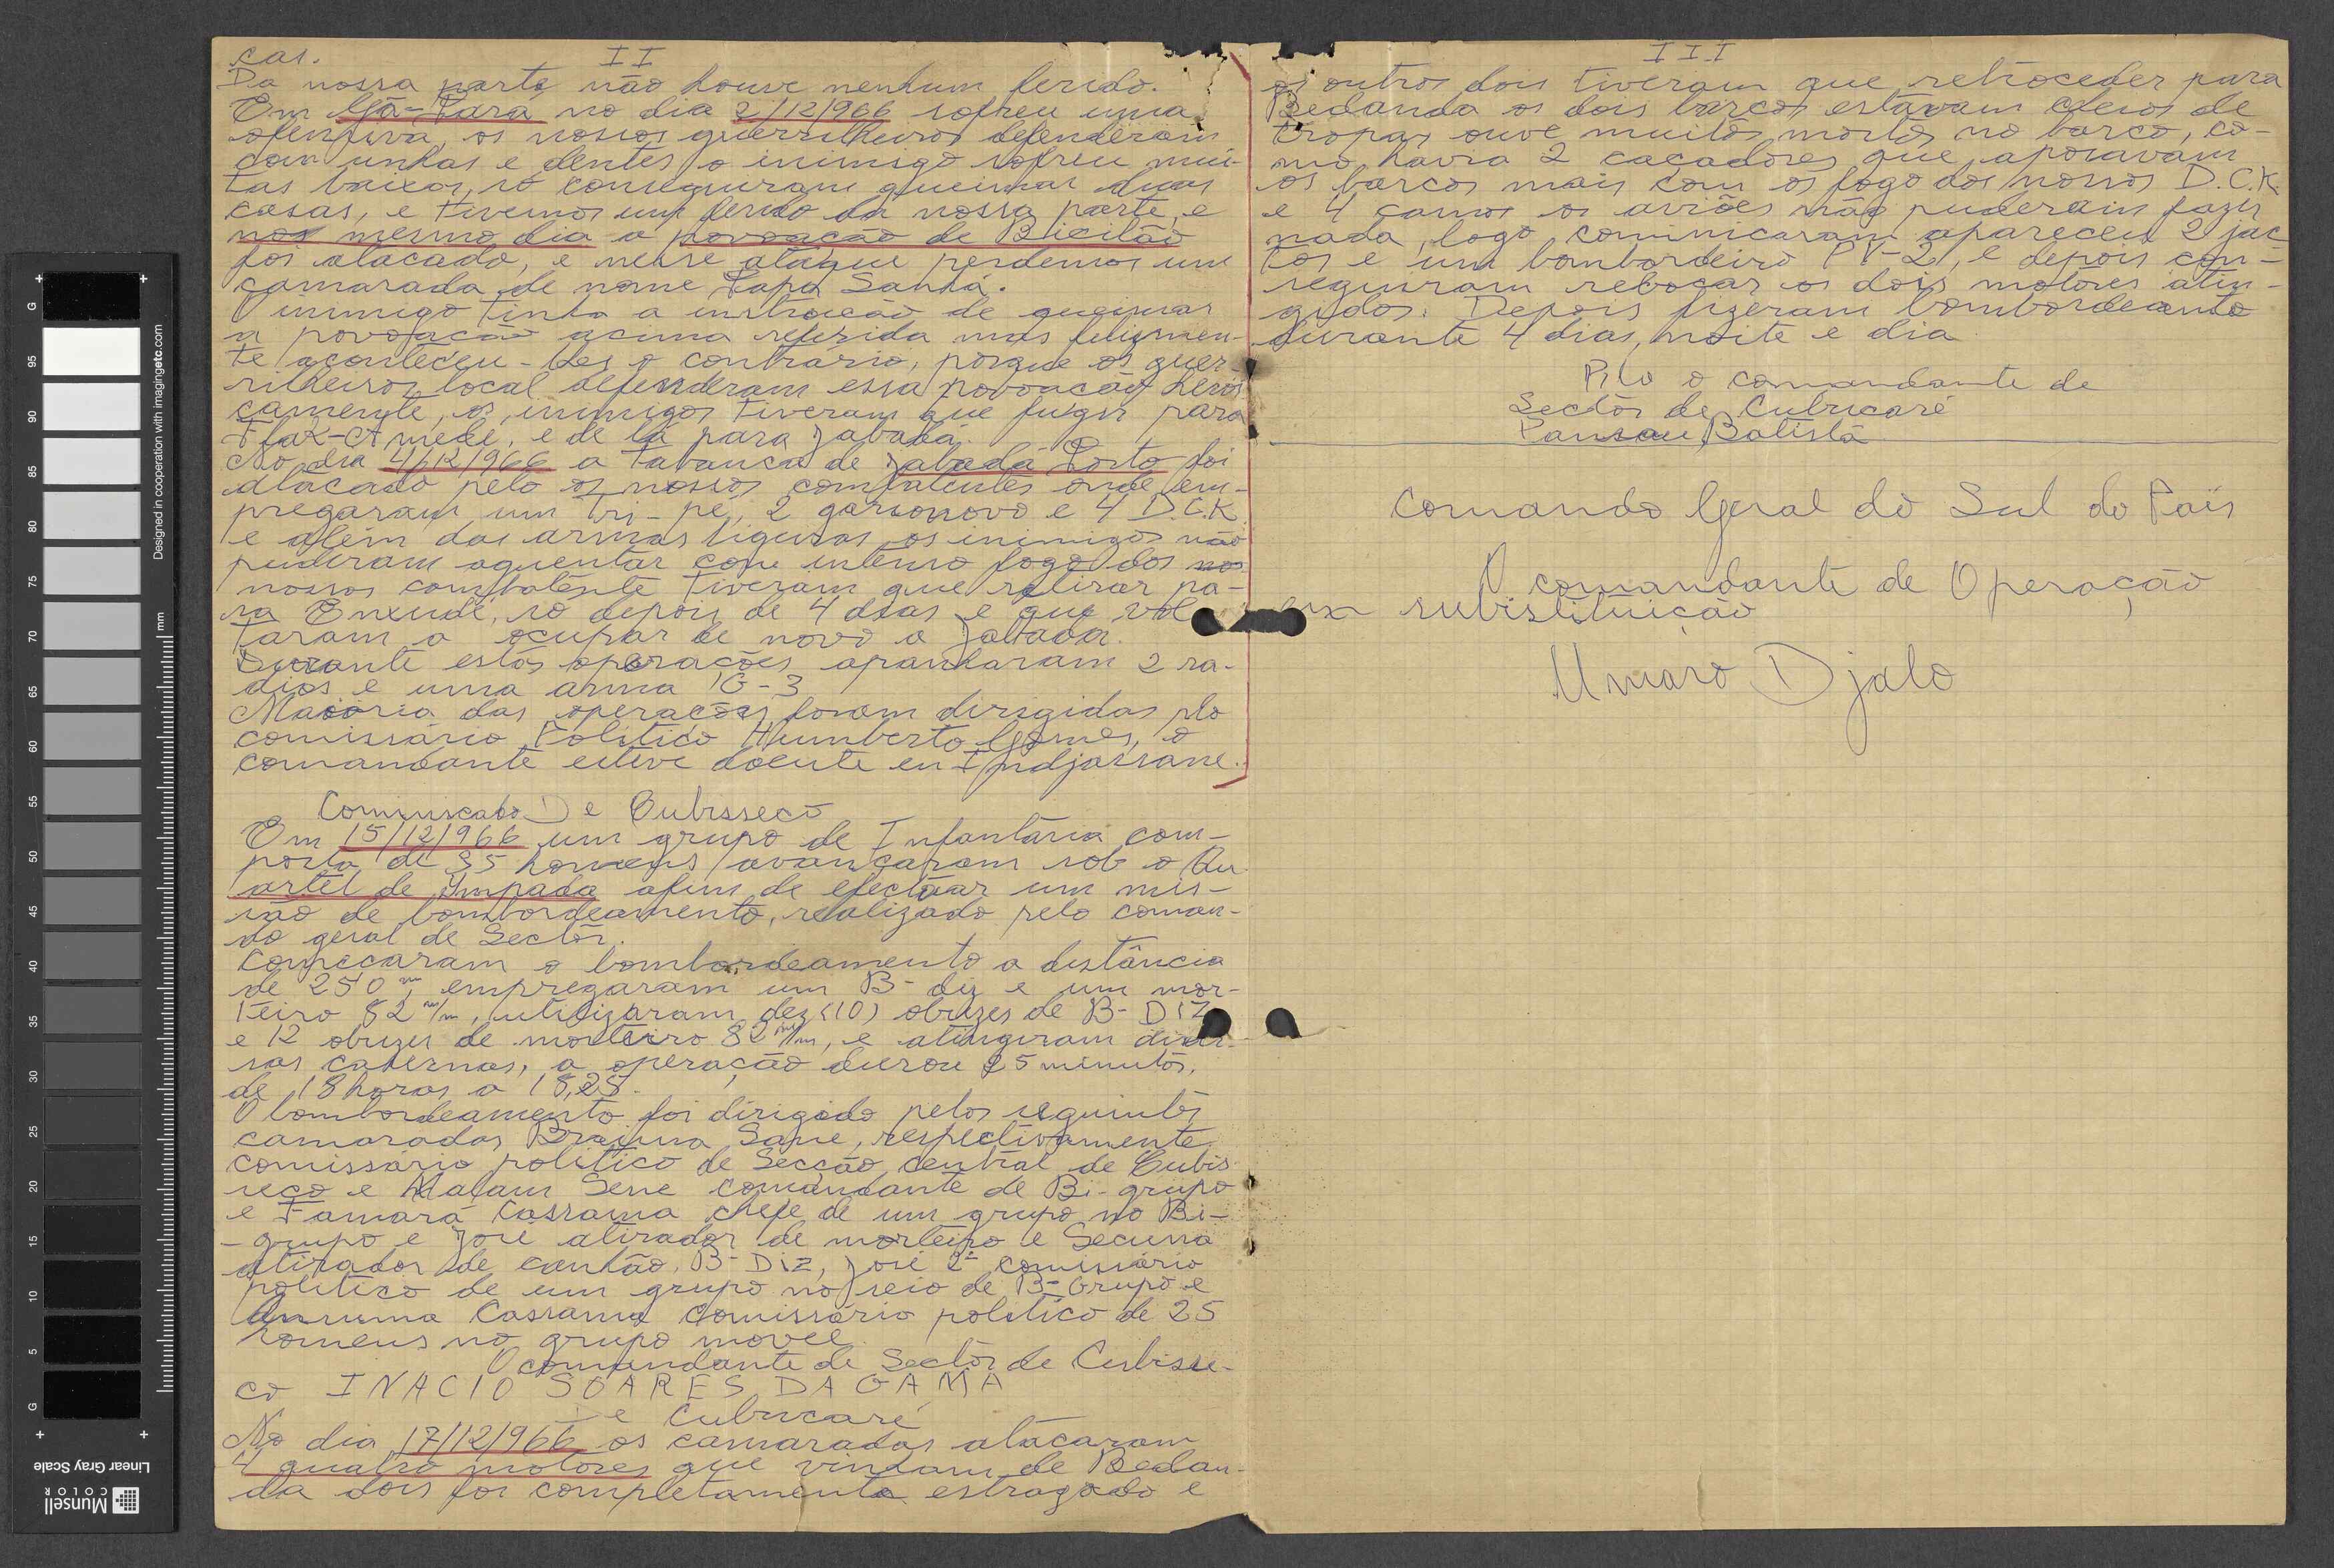 II
cas.
Da nossa parte não houve nenhum ferido.
Em Gã-Pará no dia 2/12/966 sofreu uma
ofensiva, os nossos guerrilheiros defenderam
com unhas e dentes o inimigo sofreu mui-
tas baixas, só conseguiram queimar duas
casas, e tivemos um ferido da nossa parte, e
nos mesmo dia a povoação de Bicilão
foi atacado, e nesse ataque perdemos um
camarada de nome Papa Sanhá.
O inimigo tinha a instrução de queimar
a povoação acima referida mas felizmen-
te aconteceu-les o contrário, porque os guer-
rilheiros local defenderam essa povoação heroi
camente, os inimigos tiveram que fugir para
e de lá para Jabadá.
No dia 4/12/966 a tabanca de Jabadá Porto foi
atacado pelo os nossos combatentes onde em-
pregaram um tri-pé, 2 garionovo e 4 D.C.K.
e além das armas ligeiras, os inimigos não
puderam aguentar com intenso fogo dos nos
nossos combatente tiveram que retirar pa-
ra Enxudé, só depois de 4 dias e que vol
taram a ocupar de novo a Jabadá.
Durante estas operações apanharam 2 ra-
dios e uma arma G-3
Maioria das operações foram dirigidas plo
comissário Politico Humberto Gomes, o
comandante esteve doente en Indjassane.
Comunicado De Cubisseco
Em 15/12/966 um grupo de Infantaria com-
posta de 35 homens avançaram sob o Qu
artel de Impada afim de efectuar um mis-
são de bombordeamento, realizado pelo coman-
do geral de Sector.
Começaram o bombardeamento a distância
de 250 m, empregaram um B-diz e um mor-
teiro 82 m/m, utilizaram dez (10) obuzes de B-Diz
e 12 obuzes de morteiro 82 m/m, e atingiram diver-
sas casernas, a operação durou 25 minutos,
de 18 horas a 18,25.
O bombordeamento foi dirigido pelos seguintes
camaradas Braima Sane, respectivamente
comissário politico de Secção central de Cubis
seco e Malam Sene comandante de Bi-grupo
e Famará Cassama chefe de um grupo no Bi-
-grupo e José atirador de morteiro e Secuna
atirador de canhão B-Diz, José 2º comissário
politico de um grupo no seio de B-Grupo e
Cassama Comissário politico de 25
homens no grupo movel.
O comandante de Sector de Cubisse-
co INACIO SOARES DA GAMA
De Cubucaré
No dia 17/12/966 os camaradas atacaram
4 quatro motores que vinham de Bedan-
da dois foi completamente estragado e
III
os outros dois tiveram que retroceder para
Bedanda os dois barcos estavam cheios de
tropas ouve muitos mortos no barco, co-
mo havia 2 caçadores que apoiavam
os barcos mais com os fogo dos nossos D.C.K.
e 4 canos os aviões não puderam fazer
nada, logo cominicaram apareceu 2 jac
tos e um bombordeiro PV-2, e depois con-
seguiram rebocar os dois motores atin-
gidos. Depois fizeram bombordeanto
durante 4 dias, noite e dia
Pilo o comandante de
Sector de Cubucaré
Pansau Batista
Comando Geral do Sul do País
O comandante de Operação
em subistituição
Umaro Djalo
+ +
G
95
90
85
80
75
70
65
60
55
50
45
40
35
30
25
20
15
10
5
G
+ +
mm
Designed in cooperation with imagingetc.com
Linear Gray Scale
Munsell
COLOR